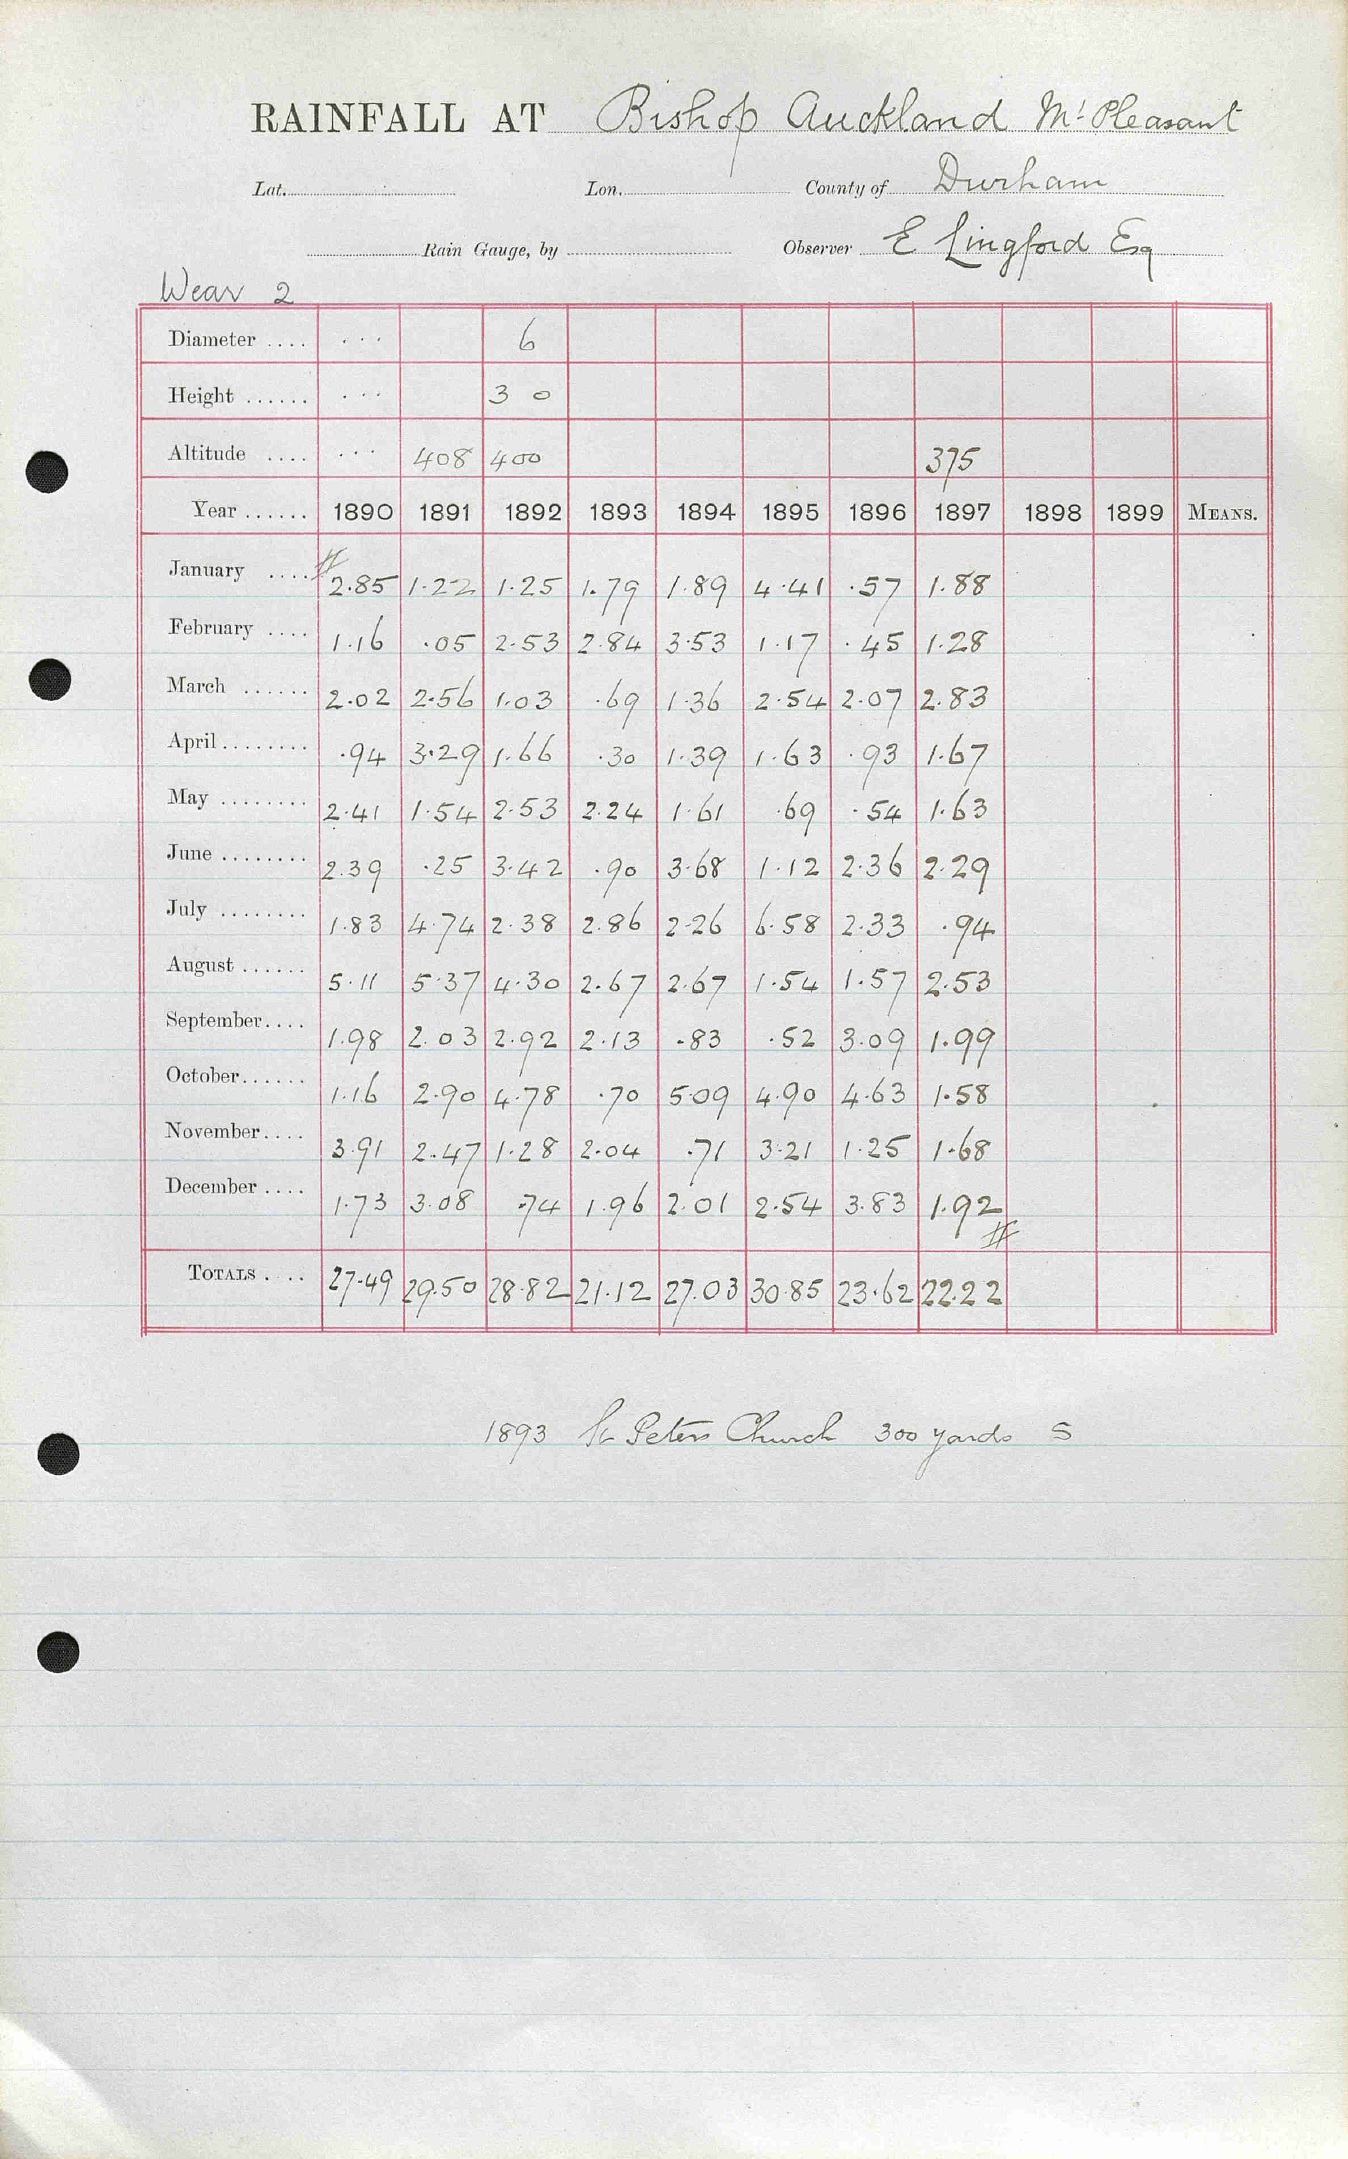 RAINFALL AT Bishop Auckland Mt Pleasant
Lat. Lon. County of Durham
Rain Gauge, by Observer E Lingford Esq
Wear 2
Diameter .... ... 6
Height ...... ... 3 0
Altitude .... ... 408 400 375
Year ...... 1890 1891 1892 1893 1894 1895 1896 1897 1898 1899 MEANS.
January .... # 2.85 1.22 1.25 1.79 1.89 4.41 .57 1.88
February .... 1.16 .05 2.53 2.84 3.53 1.17 .45 1.28
March ...... 2.02 2.56 1.03 .69 1.36 2.54 2.07 2.83
April ........ .94 3.29 1.66 .30 1.39 1.63 .93 1.67
May ........ 2.41 1.54 2.53 2.24 1.61 .69 .54 1.63
June ........ 2.39 .25 3.42 .90 3.68 1.12 2.36 2.29
July ........ 1.83 4.74 2.38 2.86 2.26 6.58 2.33 .94
August ...... 5.11 5.37 4.30 2.67 2.67 1.54 1.57 2.53
September.... 1.98 2.03 2.92 2.13 .83 .52 3.09 1.99
October...... 1.16 2.90 4.78 .70 5.09 4.90 4.63 1.58
November.... 3.91 2.47 1.28 2.04 .71 3.21 1.25 1.68
December .... 1.73 3.08 .74 1.96 2.01 2.54 3.83 1.92 #
TOTALS .... 27.49 29.50 28.82 21.12 27.03 30.85 23.62 22.22
1893 St Peters Church 300 yards S